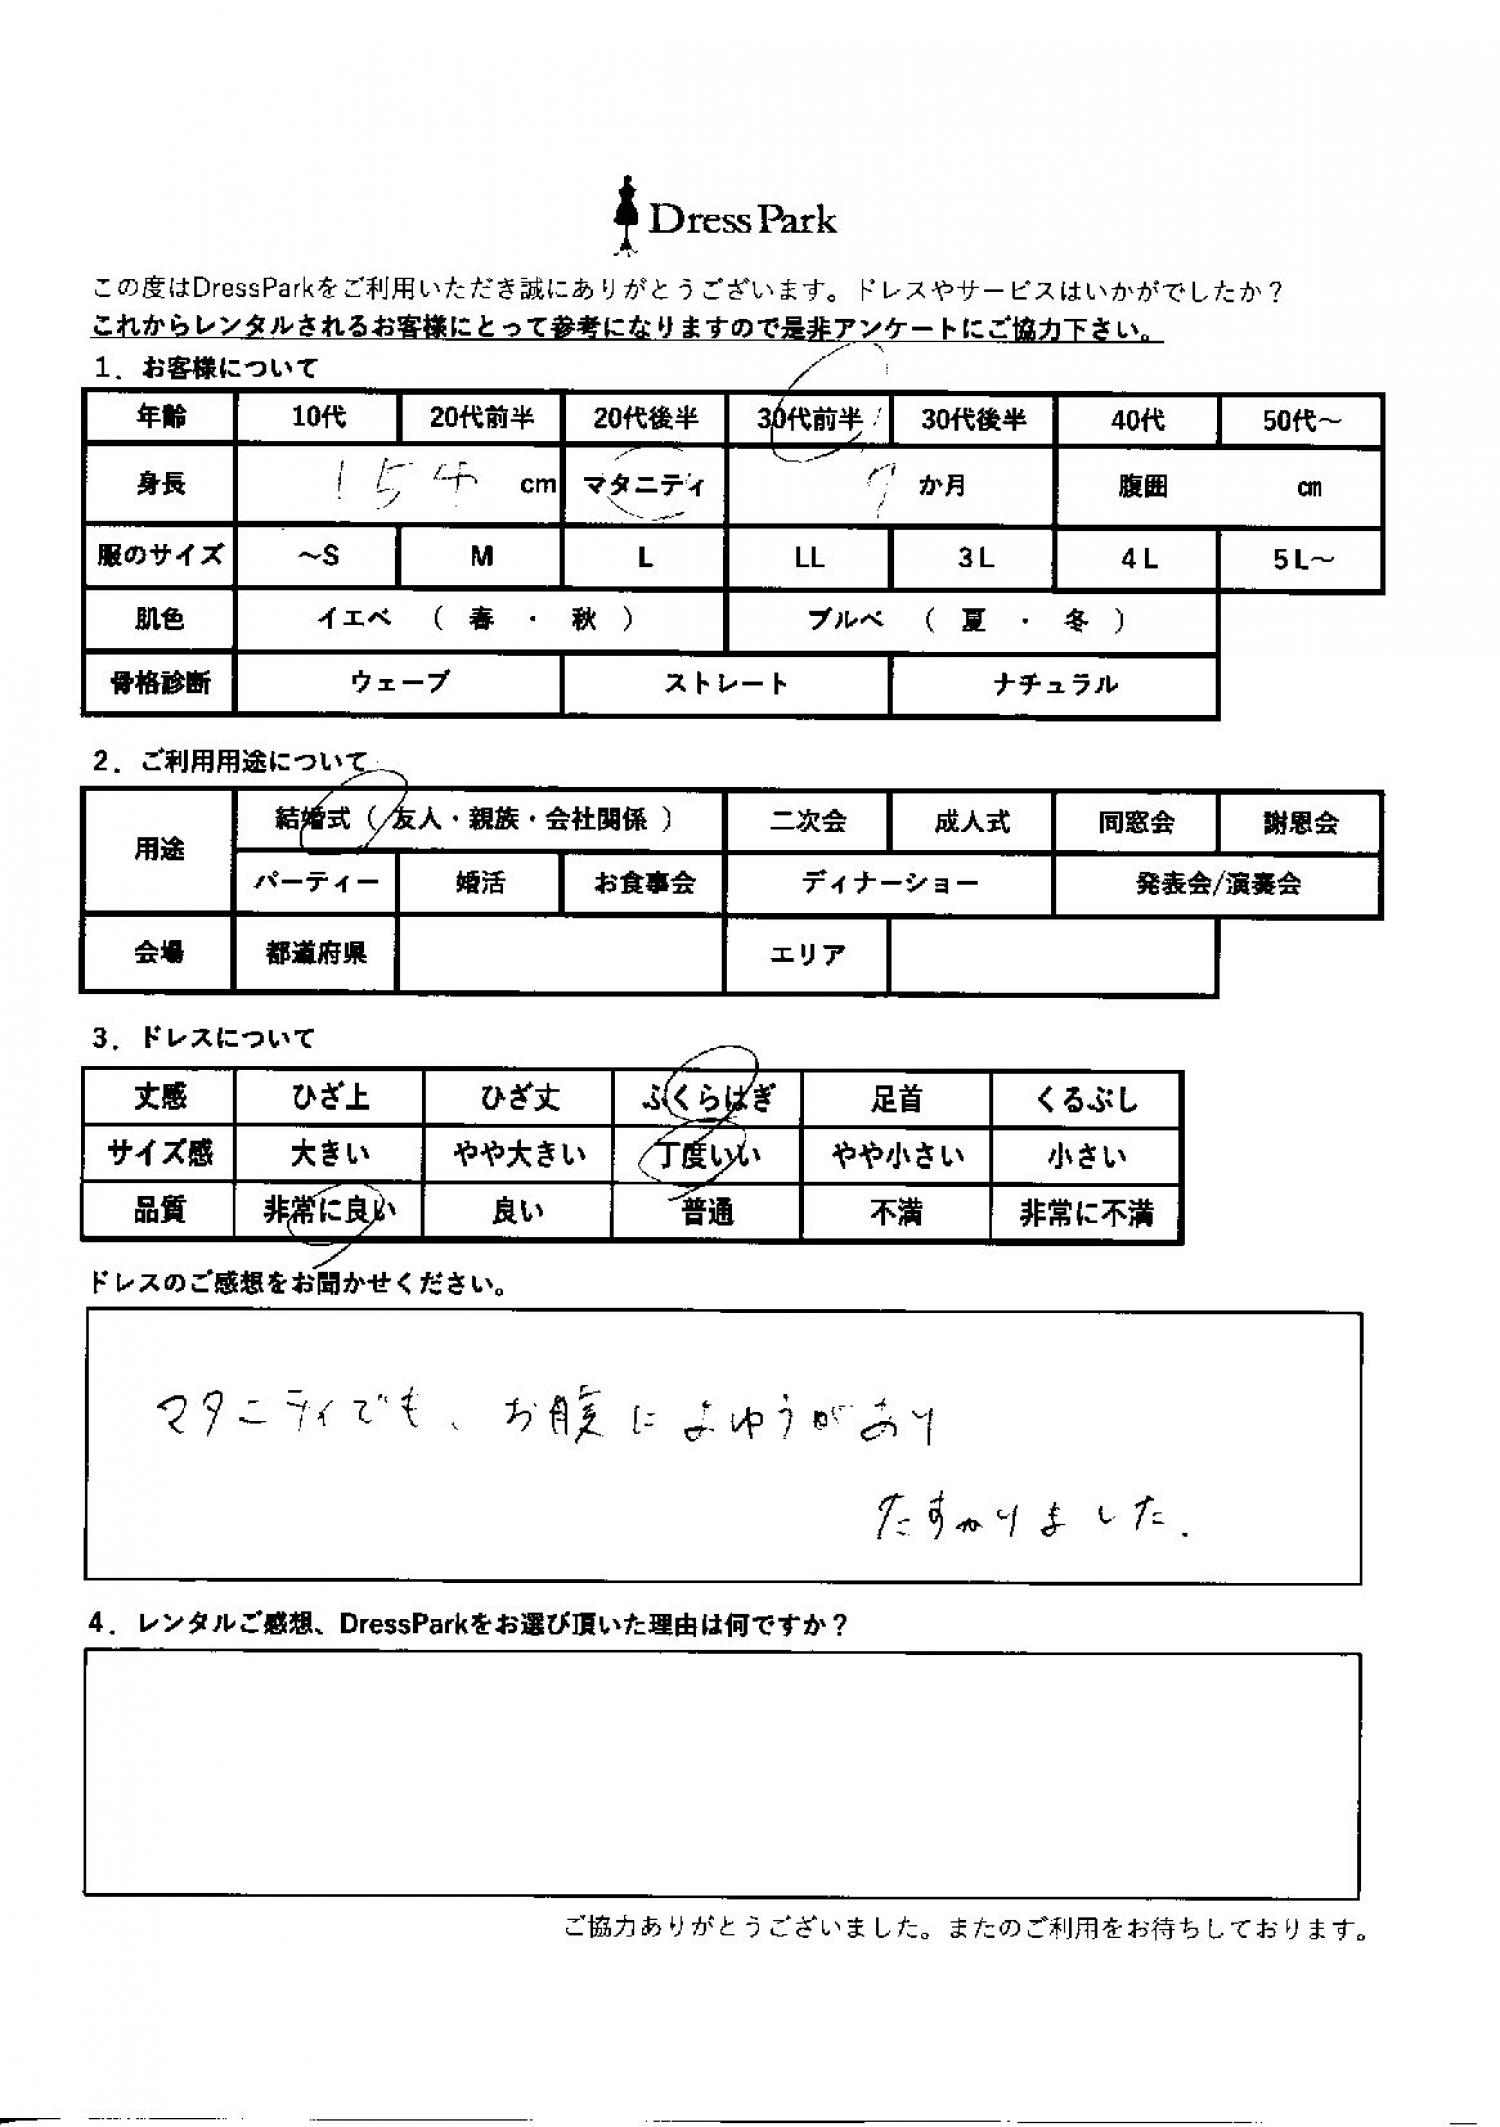 Dress Park
この度はDressParkをご利用いただき誠にありがとうございます。ドレスやサービスはいかがでしたか？
これからレンタルされるお客様にとって参考になりますので是非アンケートにご協力下さい。
1．お客様について
年齢 10代 20代前半 20代後半 30代前半 30代後半 40代 50代～
身長 154 cm マタニティ 9 か月 腹囲 cm
服のサイズ ～S M L LL 3L 4L 5L～
肌色 イエベ （ 春 ・ 秋 ） ブルベ （ 夏 ・ 冬 ）
骨格診断 ウェーブ ストレート ナチュラル
2．ご利用用途について
用途 結婚式（ 友人・親族・会社関係 ） 二次会 成人式 同窓会 謝恩会
パーティー 婚活 お食事会 ディナーショー 発表会/演奏会
会場 都道府県 エリア
3．ドレスについて
丈感 ひざ上 ひざ丈 ふくらはぎ 足首 くるぶし
サイズ感 大きい やや大きい 丁度いい やや小さい 小さい
品質 非常に良い 良い 普通 不満 非常に不満
ドレスのご感想をお聞かせください。
マタニティでも、お腹によゆうがあり
たすかりました.
4．レンタルご感想、DressParkをお選び頂いた理由は何ですか？
ご協力ありがとうございました。またのご利用をお待ちしております。